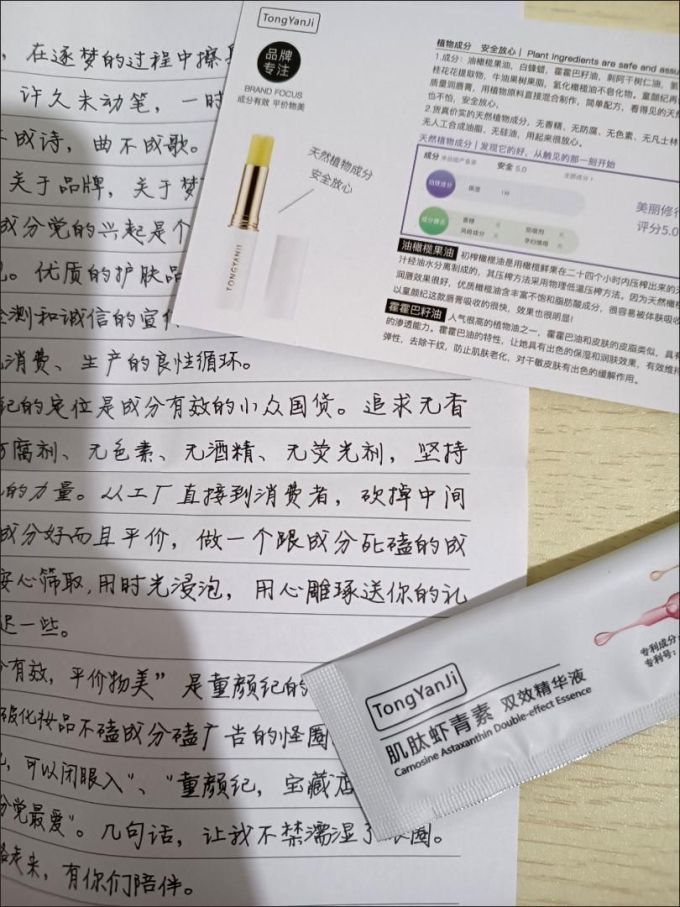 在逐梦的过程中擦
许久未动笔，一时
成诗，曲不成歌。
关于品牌，关于梦
成分党的兴起是个
。优质的护肤品
测和诚信的宣
消费、生产的良性循环。
纪的定位是成分有效的小众国货。追求无香
腐剂、无色素、无酒精、无荧光剂，坚持
的力量。从工厂直接到消费者，砍掉中间
成分好而且平价，做一个跟成分死磕的成
安心筛取,用时光浸泡，用心雕琢送你的礼
迟一些。
有效，平价物美”是童颜纪的
化妆品不磕成分磕广告的怪圈
，可以闭眼入”、“童颜纪，宝藏店
分党最爱”。几句话，让我不禁濡湿了眼圈。
走来，有你们陪伴。
TongYanJi
品牌
专注
BRAND FOCUS
成分有效 平价物美
天然植物成分
安全放心
TONGYANJI
植物成分 安全放心 | Plant ingredients are safe and assu
1.成分：油橄榄果油，白蜂蜡，霍霍巴籽油，刺阿干树仁油，氢
桂花花提取物，牛油果树果脂，氢化橄榄油不皂化物。童颜纪再
质量润唇膏，用植物原料直接混合制作，简单配方，看得见的天然
也不怕，安全放心。
2.货真价实的天然植物成分，无香精、无防腐、无色素、无凡士林
无人工合成油脂、无硅油，用起来很放心。
天然植物成分 | 发现它的好，从触见的那一刻开始
成分
安全 5.0
美丽修行
评分5.0
油橄榄果油
初榨橄榄油是用橄榄鲜果在二十四个小时内压榨出来的天
汁经油水分离制成的，其压榨方法采用物理低温压榨方法。因为天然橄榄
润唇效果很好，优质橄榄油含丰富不饱和脂肪酸成分，很容易被体肤吸收
以童颜纪这款唇膏吸收的很快，效果也很明显!
霍霍巴籽油
人气很高的植物油之一，霍霍巴油和皮肤的皮脂类似，具有
的渗透能力。霍霍巴油的特性，让她具有出色的保湿和润肤效果，有效维持
弹性，去除干纹，防止肌肤老化，对于敏皮肤有出色的缓解作用。
TongYanJi
肌肽虾青素 双效精华液
Carnosine Astaxanthin Double-effect Essence
专利成分
专利号：